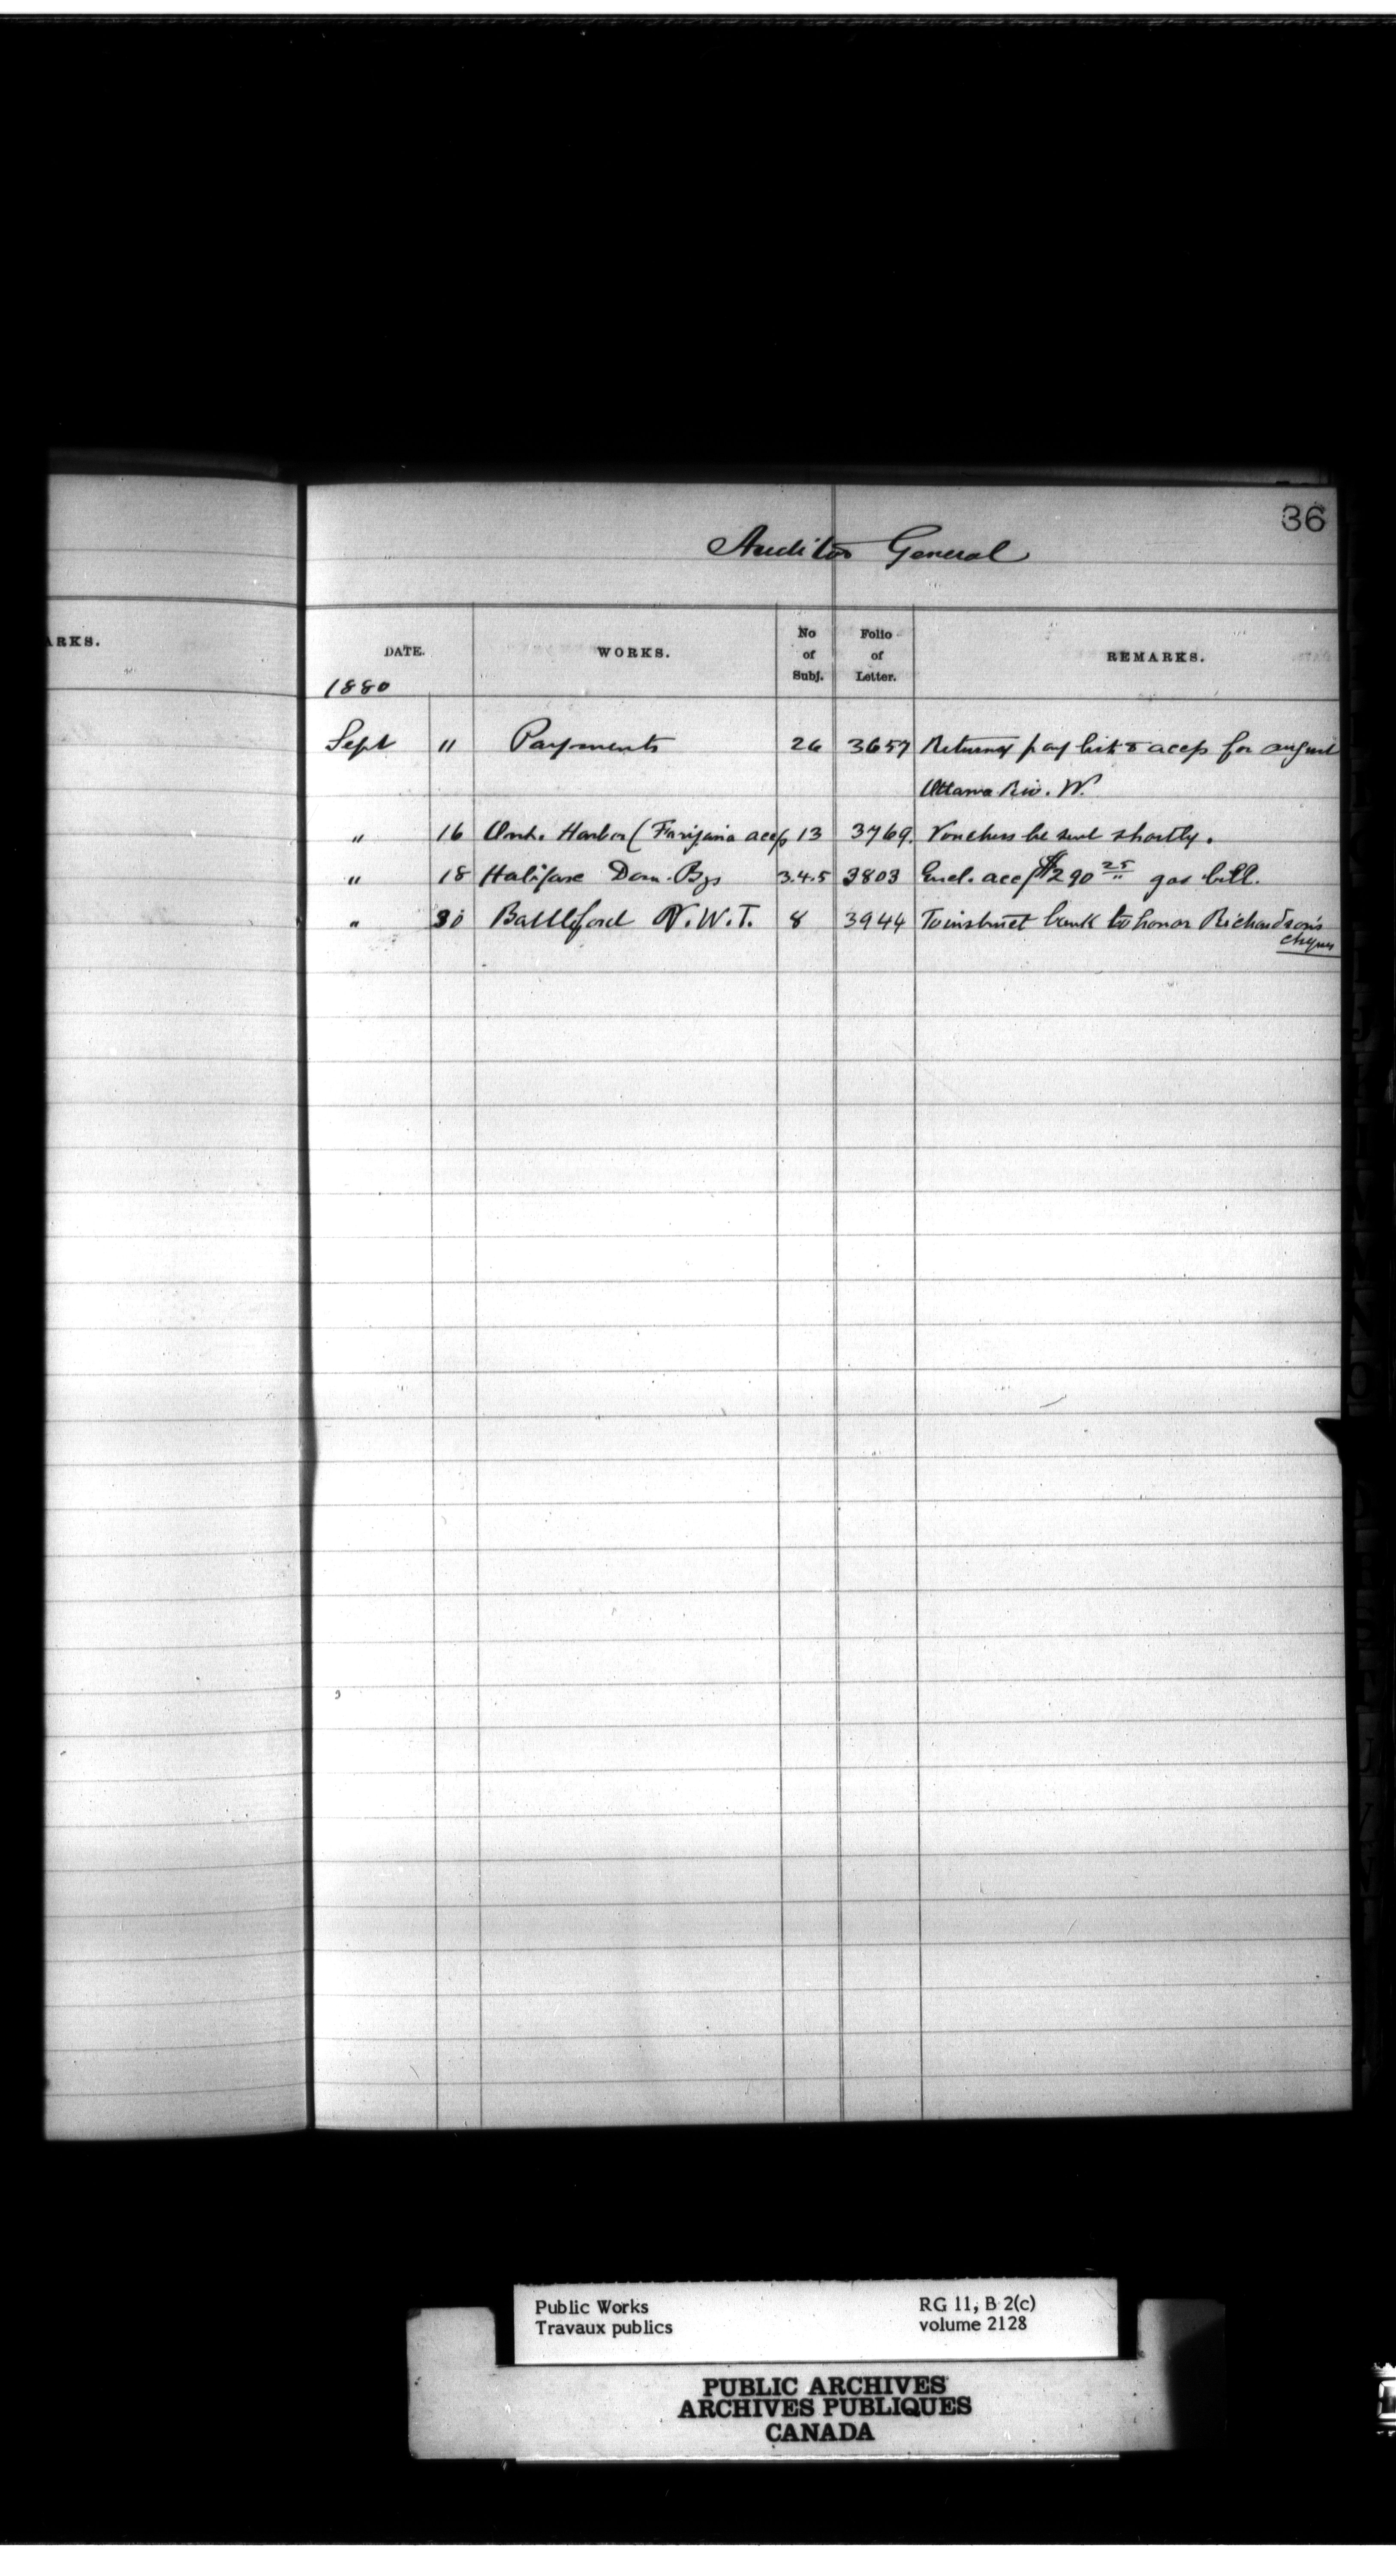 ARKS.
36
Auditor General
DATE. WORKS. No of Subj. Folio of Letter. REMARKS.
1880
Sept 11 Payments 26 3657 Returning pay list & accts for august
Ottawa Riv. W.
" 16 Ont. Harbor ( accts 13 3769. Vouchers be sent shortly.
" 18 Halifax Dom. Bgs 3.4.5 3803 Encl. acct $290 25 gas bill.
" 30 Battleford N.W.T. 8 3944 To instruct bank to honor Richardson's
cheques
Public Works RG 11, B 2(c)
Travaux publics volume 2128
PUBLIC ARCHIVES
ARCHIVES PUBLIQUES
CANADA